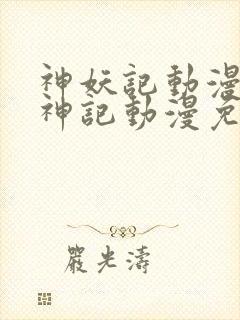 神妖記動漫
神記動漫免
嚴光濤